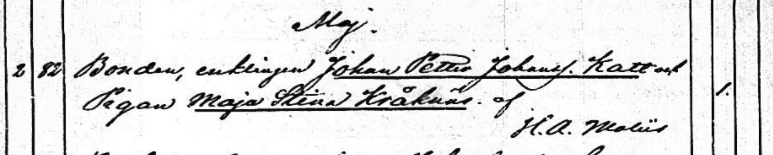 Maj.
2 82 Bonden, enklingen Johan Petter Johanss. Katt och
Pigan Maja Stina Kråknäs. af
H. A. Moliis
1.